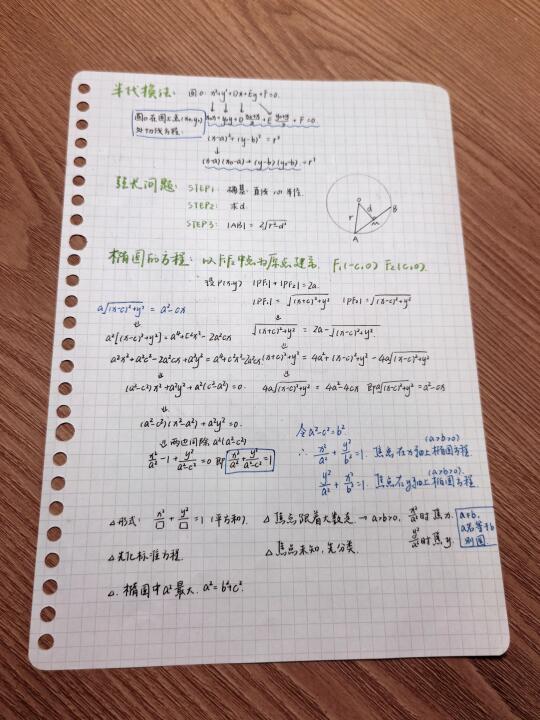 半代换法: 圆O: x²+y²+Dx+Ey+F=0.
圆O在图上点(x₀,y₀)处切线方程.
x₀x+y₀y+D(x₀+x)/2+E(y₀+y)/2+F=0
(x-a)²+(y-b)²=r²
↓
(x-a)(x₀-a)+(y-b)(y₀-b)=r²
弦长问题: STEP1: 确基: 直线 半径.
STEP2: 求d.
STEP3: |AB|=2√(r²-d²)
O
r
d
M
B
A
椭圆的方程: 以F₁F₂中点为原点建系, F₁(-c,0) F₂(c,0).
设P(x,y) |PF₁|+|PF₂|=2a.
|PF₁|=√((x+c)²+y²) |PF₂|=√((x-c)²+y²)
a√((x-c)²+y²)=a²-cx
√((x+c)²+y²)=2a-√((x-c)²+y²)
a²[(x-c)²+y²]=a⁴+c²x²-2a²cx
(x+c)²+y²=4a²+(x-c)²+y²-4a√((x-c)²+y²)
a²x²+a²c²-2a²cx+a²y²=a⁴+c²x²-2a²cx
(a²-c²)x²+a²y²+a²(c²-a²)=0.
4a√((x-c)²+y²)=4a²-4cx 即a√((x-c)²+y²)=a²-cx
(a²-c²)(x²-a²)+a²y²=0.
⇓两边同除a²(a²-c²)
x²/a²-1+y²/(a²-c²)=0 即 x²/a²+y²/(a²-c²)=1
令a²-c²=b²
∴ x²/a²+y²/b²=1. 焦点在x轴上椭圆方程. (a>b>0)
y²/a²+x²/b²=1. 焦点在y轴上椭圆方程. (a>b>0)
△形式: x²/□+y²/□=1 (平方和).
△焦点跟着大数走 → a>b>0, x²/a²时焦x.
y²/a²时焦y.
a≠b,
a若等于b
则圆
△先化标准方程.
△焦点未知, 先分类.
△. 椭圆中a²最大, a²=b²+c².